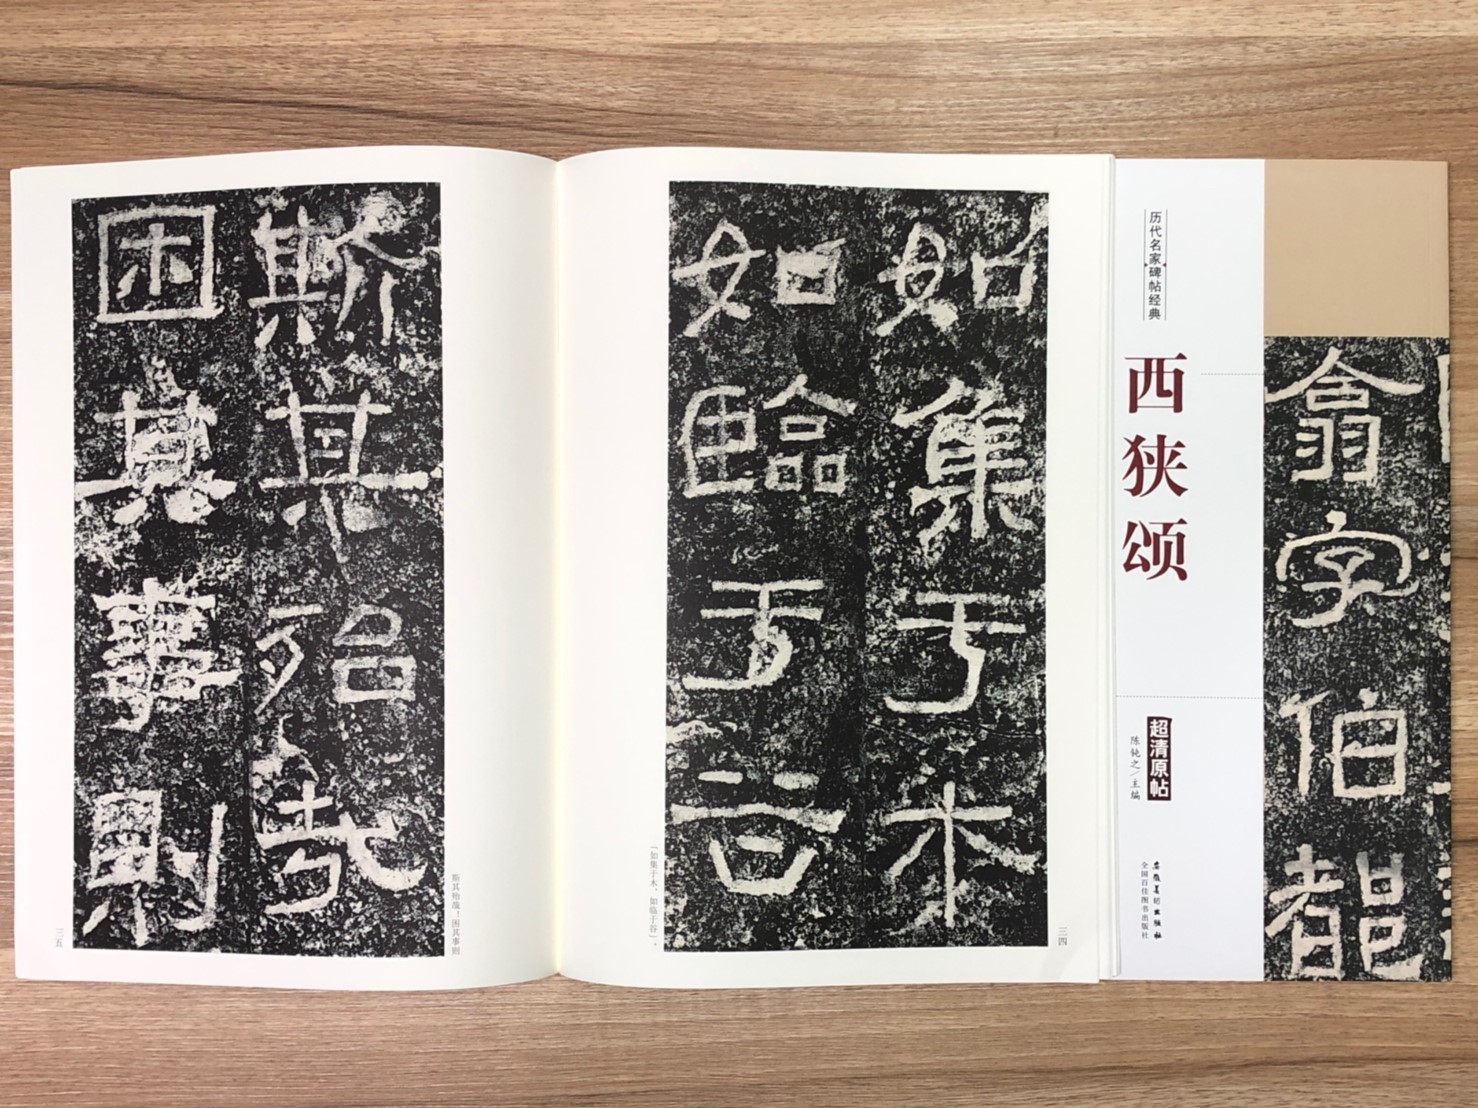 如集于木
如臨于谷
「如集于木，如临于谷」。
三四
斯其殆哉
困其事則
斯其殆哉！困其事则
三五
历代名家碑帖经典
西狭颂
超清原帖
陈钝之/主编
安徽美术出版社
全国百佳图书出版社
翕字伯都